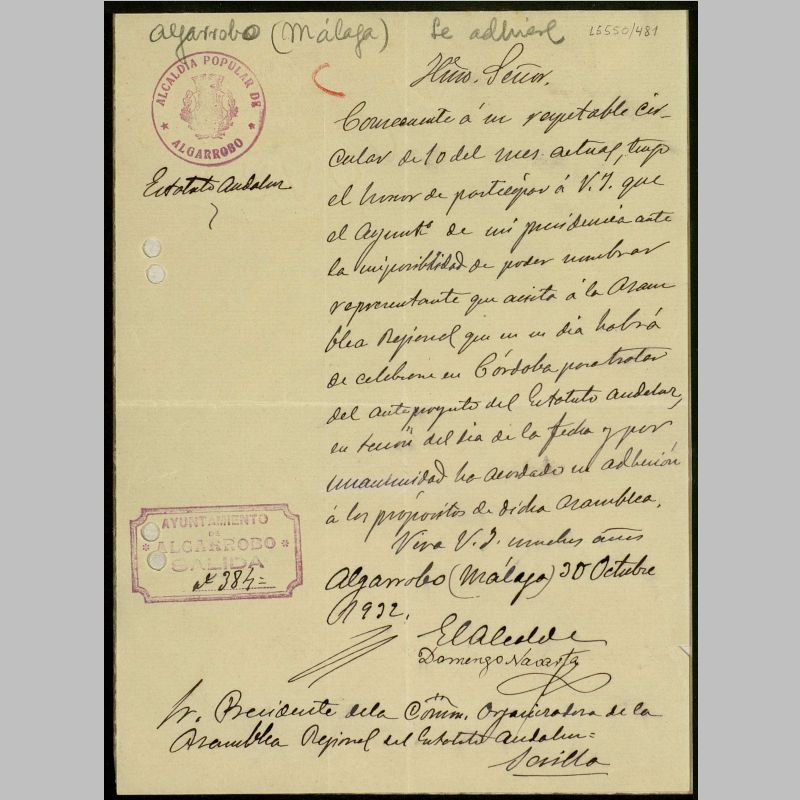 Algarrobo (Málaga) Se adhiere L5550/481
ALCALDÍA POPULAR DE
★ ALGARROBO ★
Estatuto Andaluz
Iltmo. Señor.
Consecuente á su respetable cir-
cular de 10 del mes actual, tengo
el honor de participar á V.I. que
el Ayuntº de mi presidencia ante
la imposibilidad de poder nombrar
representante que asista á la Asam
blea Regional que en su dia habrá
de celebrarse en Córdoba para tratar
del anteproyecto del Estatuto Andaluz,
en sesión del dia de la fecha y por
unanimidad ha acordado su adhesión
á los propósitos de dicha Asamblea.
Viva V.I. muchos años
Algarrobo (Málaga) 30 Octubre
1932.
AYUNTAMIENTO
DE
* ALGARROBO *
SALIDA
nº 384=
El Alcalde
Domengo
Sr. Presidente de la Comm. Organizadora de la
Asamblea Regional del Estatuto Andaluz=
Sevilla